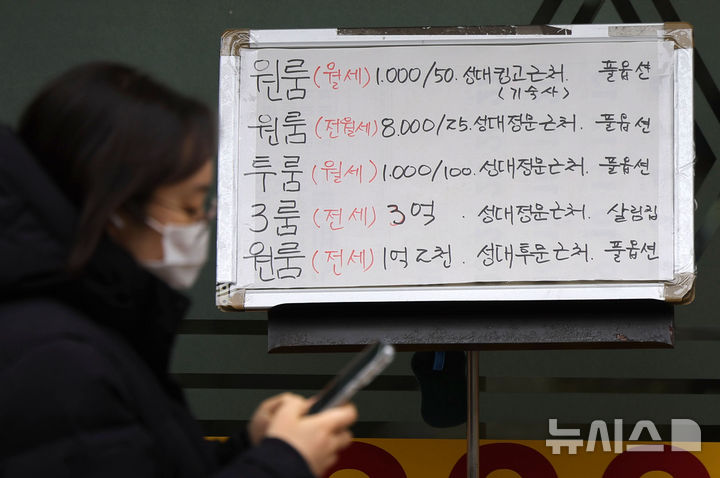 원룸 (월세) 1.000/50. 성대큰고근처. 풀옵션
(기숙사)
원룸 (전월세) 8.000/25. 성대정문근처. 풀옵션
투룸 (월세) 1.000/100. 성대정문근처. 풀옵션
3룸 (전세) 3억 . 성대정문근처. 살림집
원룸 (전세) 1억2천. 성대후문근처. 풀옵션
뉴시스